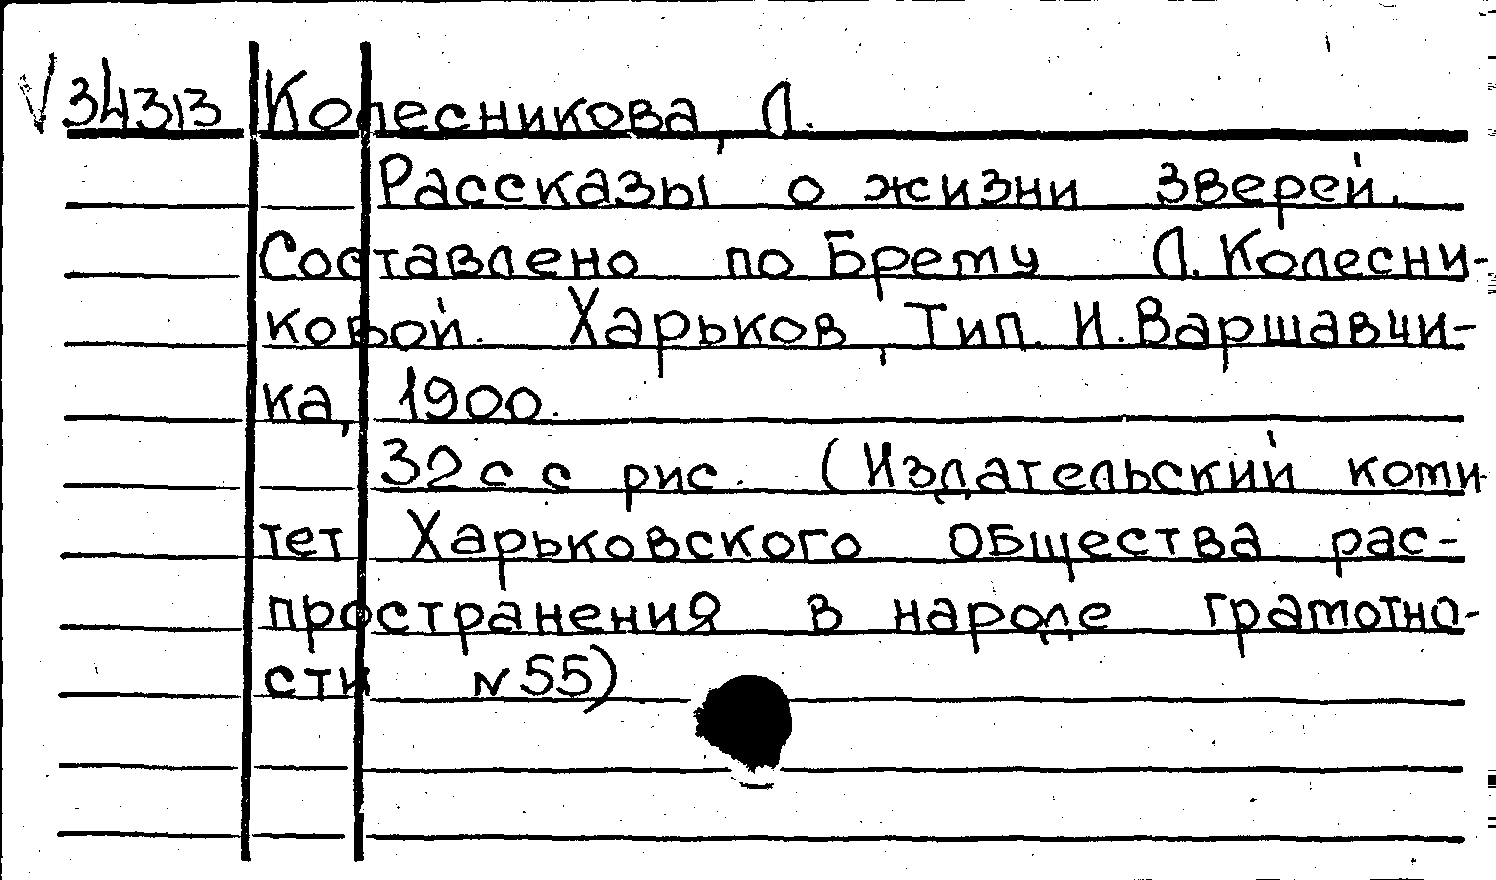 V 34313 Колесникова, Л.
Рассказы о жизни зверей.
Составлено по Брему Л. Колесни-
ковой. Харьков, Тип. И. Варшавчи-
ка, 1900.
32 с с рис. (Издательский коми
тет Харьковского Общества рас-
пространения в народе грамотно-
сти N 55)